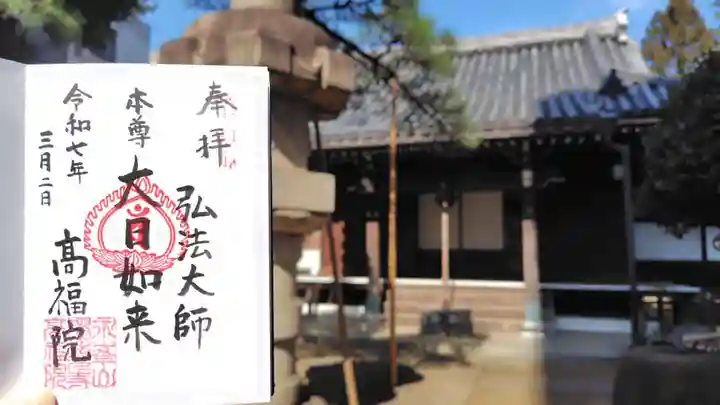 奉拝
弘法大師
本尊
大日如来
令和七年
三月二日
高福院